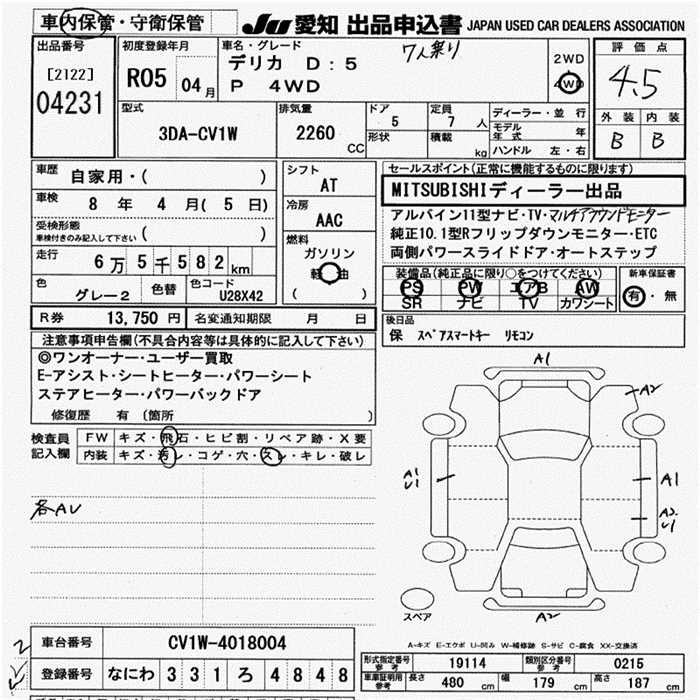 車内保管・守衛保管
JU 愛知 出品申込書 JAPAN USED CAR DEALERS ASSOCIATION
出品番号
[2122]
04231
初度登録年月
R05 04月
車名・グレード
7人乗り
デリカ D:5
P 4WD
2WD
4WD
評価点
4.5
外装 内装
B B
型式
3DA-CV1W
排気量
2260 CC
ドア
5
形状
定員
7 人
積載
kg
ディーラー・並行
モデル年式 年
ハンドル 左・右
車歴
自家用・( )
車検
8 年 4 月( 5 日)
受検形態
車検付きのみ記入して下さい ( )
走行
6万5千582km
色
グレー2
色替
色コード
U28X42
シフト
AT
冷房
AAC
燃料
ガソリン
軽油
( )
セールスポイント(正常に機能するものに限ります)
MITSUBISHIディーラー出品
アルパイン11型ナビ・TV・マルチアラウンドモニター
純正10.1型Rフリップダウンモニター・ETC
両側パワースライドドア・オートステップ
装備品(純正品に限り○をつけてください)
PS PW エアB AW
SR ナビ TV カワシート
新車保証書
有・無
R券 13,750 円
名変通知期限 月 日
後日品
保 スペアスマートキー リモコン
注意事項申告欄(不具合内容等は具体的に記入して下さい)
◎ワンオーナー・ユーザー買取
E-アシスト・シートヒーター・パワーシート
ステアヒーター・パワーバックドア
修復歴 有 (箇所 )
検査員
記入欄
FW キズ・飛石・ヒビ割・リペア跡・X要
内装 キズ・汚レ・コゲ・穴・スレ・キレ・破レ
各AU
A1
A2
A1
U1
A1
A2
U1
A2
スペア
A-キズ E-エクボ U-凹み W-補修跡 S-サビ C-腐食 XX-交換済
車台番号 CV1W-4018004
登録番号 なにわ 331 ろ 4848
形式指定番号
参考
19114
類別区分番号
参考
0215
車庫証明用
参考
長さ 480 cm
幅 179 cm
高さ 187 cm